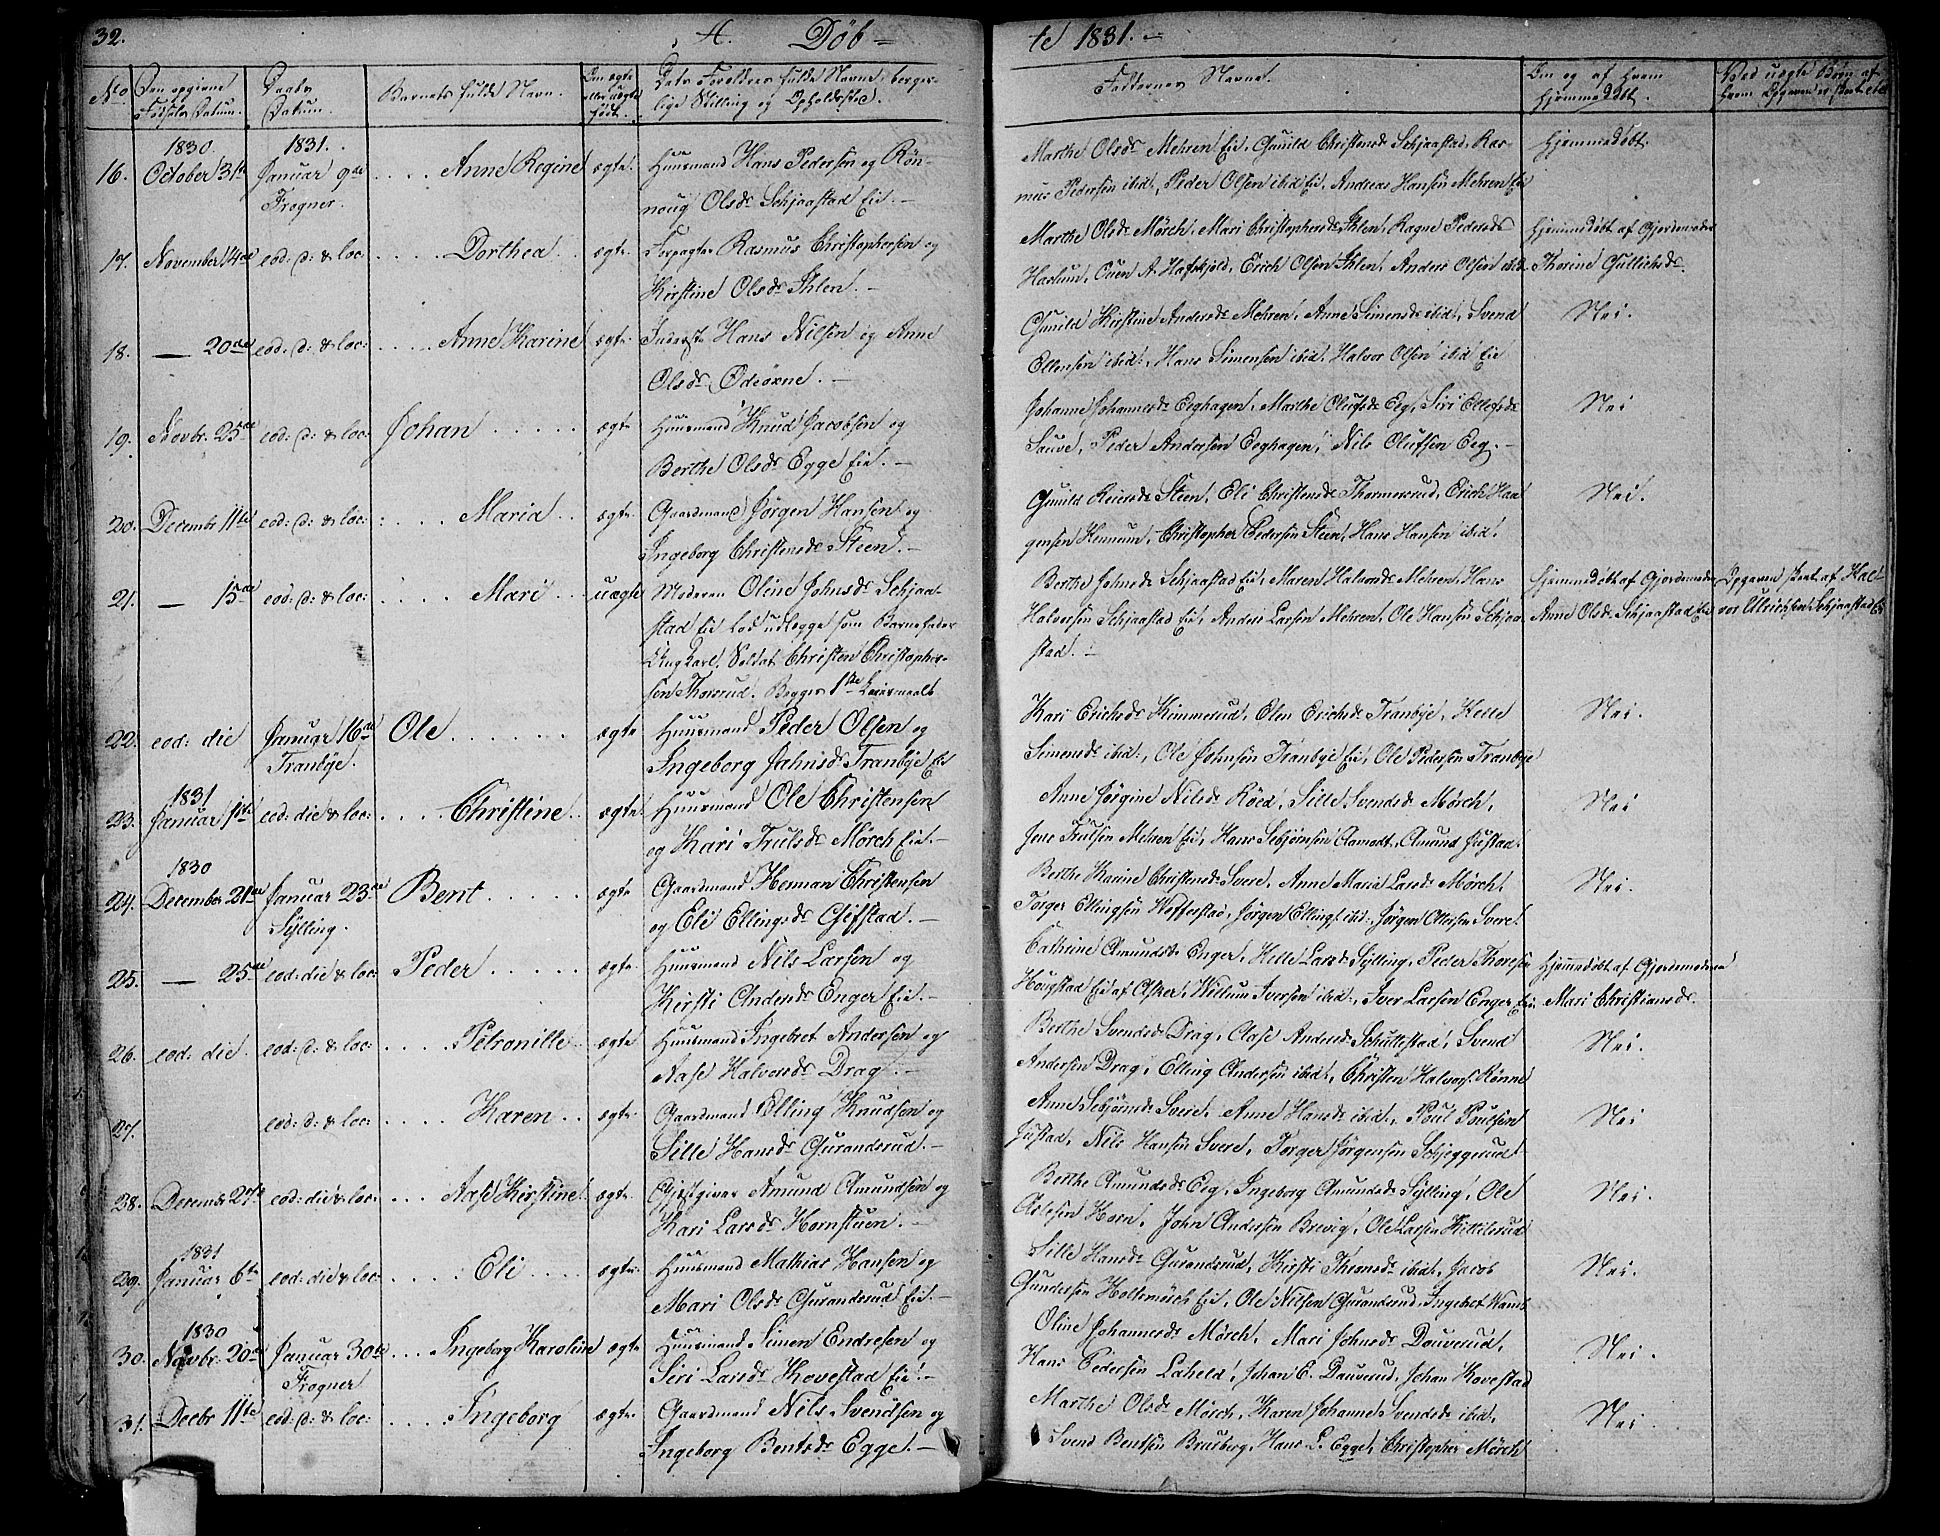 32. A. Døb=
te 1831.
No. Den opgivne Fødsels Datum. Daabs Datum. Barnets fulde Navn. Om ægte eller uægte født. Dets Forældres fulde Navne, borgerlige Stilling og Opholdssted.
Faddernes Navne. Om og af hvem hjemmedøbt. Ved uægte Børn af hvem Opgaven er skeet etc.
1830. 1831.
16. October 31te Januar 9de .... Anne Regine ægte. Huusmand Hans Pedersen og Røn-
Frogner. noug Olsdr Schjaastad Eie.
Marthe Olsdr Mehren Eie, Gunild Christensdr Schjaastad, Ras- Hjemmedøbt.
mus Pedersen ibid, Peder Olsen ibid Eie, Andreas Hansen Mehren Eie
17. November 14de eod: d: & loc: .... Dorthea ægte. Forpagter Rasmus Christophersen og
Kirstine Olsdr Ihlen.
Marthe Olsdr Mörch, Mari Christophersdr Ihlen, Ragne Pedersdr Hjemmedøbt af Gjordemoder
Haslum, Ouen A. Hafskjold, Erich Olsen Ihlen, Anders Olsen ibid. Thorine Gullichsdr
18. — 20de eod: d: & loc: .... Anne Karine ægte. Inderste Hans Nilsen og Anne
Olsdr Odeörne.
Gunild Kirstine Andersdr Mehren, Anne Simensdr ibid, Svend Nei.
Ellensen ibid, Hans Simensen ibid, Halvor Olsen ibid Eie
19. Novbr. 25de eod: d: & loc: Johan ..... ægte Huusmand Knud Jacobsen og
Berthe Olsdr Egge Eie.
Johanne Johannesdr Eeghagen, Marthe Olufsdr Eeg, Siri Ellefsdr Nei
Sauve, Peder Andersen Eeghagen, Nils Olufsen Eeg.
20. Decembr 11te eod: d: & loc: .... Maria ægte. Gaardmand Jørgen Hansen og
Ingeborg Christensdr Steen.
Gunild Reiersdr Steen, Eli Christensdr Thormersrud, Erich Haa- Nei.
gensen Hennum, Christopher Pedersen Steen, Hans Hansen ibid.
21. — 15de eod: d: & loc: .... Mari uægte Moderen Oline Johnsdr Schjaa-
stad Eie lod udlægge som Barnefader
Ungkarl, Soldat Christen Christopher-
sen Thorsrud. Begges 1ste Leiermaal
Berthe Johnsdr Schjaastad Eie, Maren Halvorsdr Mehren, Hans Hjemmedøbt af Gjordemoder Opgaven skeet af Hal-
Halvorsen Schjaastad Eie, Anders Larsen Mehren, Ole Hansen Schjaa- Anne Olsdr Schjaastad Eie vor Ullrichsen Schjaastad Eie
stad.
22. eod: die Januar 16de Ole ...... ægte Huusmand Peder Olsen og
Tranbye. Ingeborg Jahnsdr Tranbye Eie
Kari Erichsdr Kimmerud, Elen Erichsdr Tranbye, Helle Nei.
Simensdr ibid, Ole Johnsen Tranbye Eie, Ole Pedersen Tranbye
1831
23. Januar 1ste eod: die & loc: .... Christine ægte. Huusmand Ole Christensen
og Kari Trulsdr Mörch Eie.
Anne Jørgine Nilsdr Röed, Sille Svendsdr Mörch, Nei
Jens Trulsen Mehren Eie, Hans Sebjørnsen Aamodt, Amund Justad.
1830
24. December 21de Januar 23de Bent ..... ægte Gaardmand Herman Christensen
Sylling. og Eli Ellingsdr Gifstad.
Berthe Karine Christensdr Svere, Anne Maria Larsdr Mörch, Nei.
Torger Ellingsen Wefferstad, Jørgen Ellings. ibid, Jørgen Ottersen Svere.
25. — 25de eod: die & loc: Peder ..... ægte. Huusmand Nils Larsen og
Kirsti Andersdr Enger Eie.
Cathrine Amundsdr Enger, Helle Larsdr Sylling, Peder Thoresen Hjemmedøbt af Gjordemoderen
Hougstad Eie af Asker, Willum Iversen ibid, Iver Larsen Enger Eie Mari Christiansdr.
26. eod: die. eod: d: & loc: .... Petronille ægte Huusmand Ingebret Andersen og
Aase Halvorsdr Drag.
Berthe Svendsdr Drag, Aase Andersdr Schullestad, Svend Nei.
Andersen Drag, Elling Andersen ibid, Christen Halvors. Rönne
27. eod: d: & loc: .... Karen ægte. Gaardmand Elling Knudsen og
Sille Hansdr Gurandsrud.
Anne Sebjørnsdr Svere, Anne Hansdr ibid, Poul Poulsen Nei
Justad, Nils Hansen Svere, Torger Jørgensen Schjeggerud
28. Decembr 27de eod: die & loc: ... Aase Kirstine ægte. Gjæstgiver Amund Amundsen og
Kari Larsdr Hornstuen.
Berthe Amundsdr Eeg, Ingeborg Amundsdr Sylling, Ole Nei.
Aslesen Horn, John Andersen Brevig, Ole Larsen Kittilsrud
1831
29. Januar 6te eod: die & loc: .... Eli .... ægte. Huusmand Mathias Hansen og
Mari Olsdr Gurandsrud Eie.
Sille Hansdr Gurandsrud, Kirsti Thronsdr ibid, Jacob Nei.
Gundersen Holtsmörch Eie, Ole Nilsen Gurandsrud, Ingebret
1830
30. Novbr. 20de Januar 30te ... Ingeborg Karoline ægte Huusmand Simen Endresen og
Frogner Siri Larsdr Kovestad Eie.
Oline Johannesdr Mörch, Mari Johnsdr Dauverud, Nei.
Hans Pedersen Laheld, Johan E. Dauverud, Johan Kovestad
31. Decbr 11te eod: d: & loc: .... Ingeborg ægte. Gaardmand Nils Svendsen og
Ingeborg Bentsdr Egge.
Marthe Olsdr Mörch, Karen Johanne Svendsdr ibid, Nei
Svend Bentsen Brusberg, Hans L. Egge, Christopher Mörch